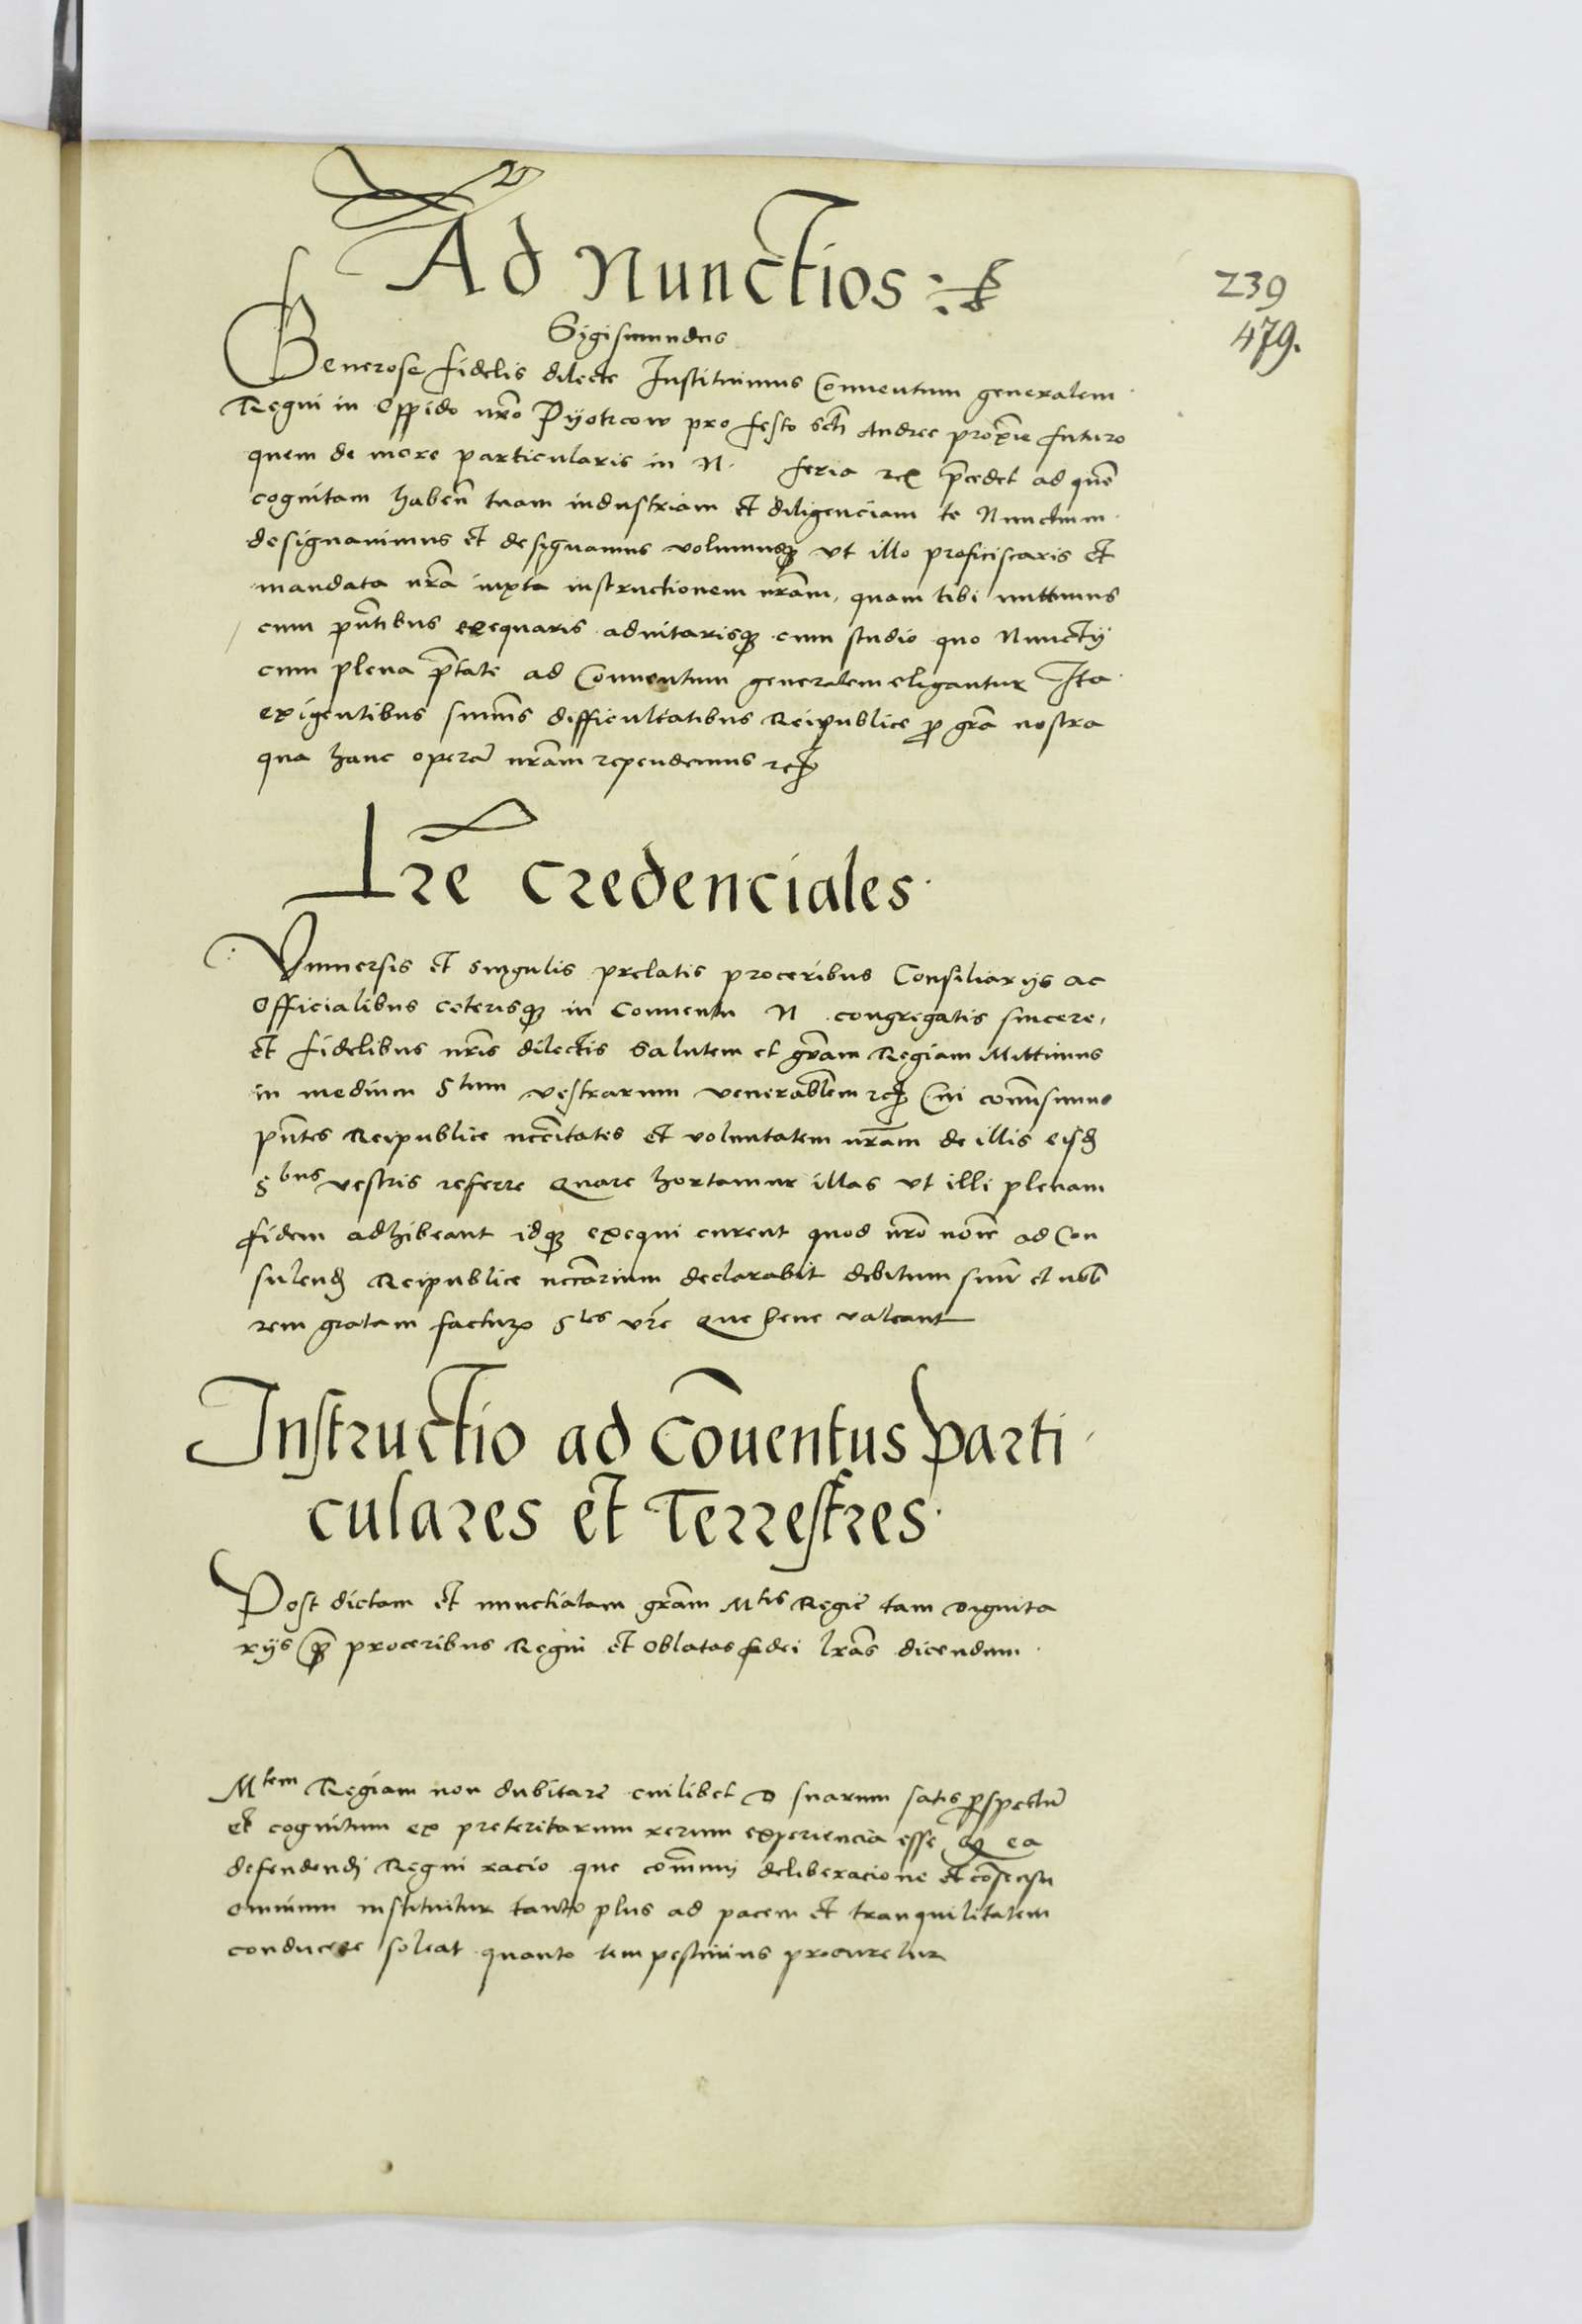 Ad Nunctios
239
479.
Sigismundus
Generose fidelis dilecte Instituimus Conventum generalem
Regni in Oppido nr̃o Pyotrcow pro festo scti Andree proxĩe futuro
quem de more particularis in N. feria rc̃ p̃cedet ad quẽ
cognitam habeñ tuam industriam et diligenciam te Nunctium
designavimus et designamus volumusq; ut illo proficiscaris et
mandata nr̃a iuxta instructionem nr̃am, quam tibi mittimus
cum pñtibus exequaris adnitarisq; cum studio quo Nunctij
cum plena p̃tate ad Conventum generalem eligantur Ita
exigentibus sum̃s difficultatibus Reipublice p gr̃a nostra
qua hanc operã nr̃am rependemus rc̃
Lr̃e credenciales.
Vniuersis et singulis prelatis proceribus Consiliarijs ac
Officialibus ceterisq; in Conventu N. congregatis sincere
et fidelibus nr̃is dilectis Salutem et gr̃am Regiam Mittimus
in medium Stum vestrarum venerabl̃em rc̃ Cui com̃isimus
pñtes Reipublice nc̃citates et voluntatem nr̃am de illis eisd̃
Sbus vestris referre Quare hortamur illas ut illi plenam
fidem adhibeant idq; exequi curent quod nr̃o noĩe ad Con
sulend̃ Reipublice nc̃carium declarabit debitum suũ et nob̃
rem gratam factur̃ Stes vr̃e Que bene valeant
Instructio ad Cõventus parti
culares et Terrestres.
Post dictam et nunctiatam gr̃am Mtis Regiẽ tam dignita
rijs q̃ proceribus Regni et oblatas fidei lr̃as dicendum.
Mtem Regiam non dubitare cuilibet D suarum satis pspectũ
et cognitum ex preteritarum rerum experiencia esse q; ea
defendendi Regni racio que com̃uni deliberacione et cõsensu
omnium instituitur tanto plus ad pacem et tranquilitatem
conducere soleat quanto tempestivius procuretur